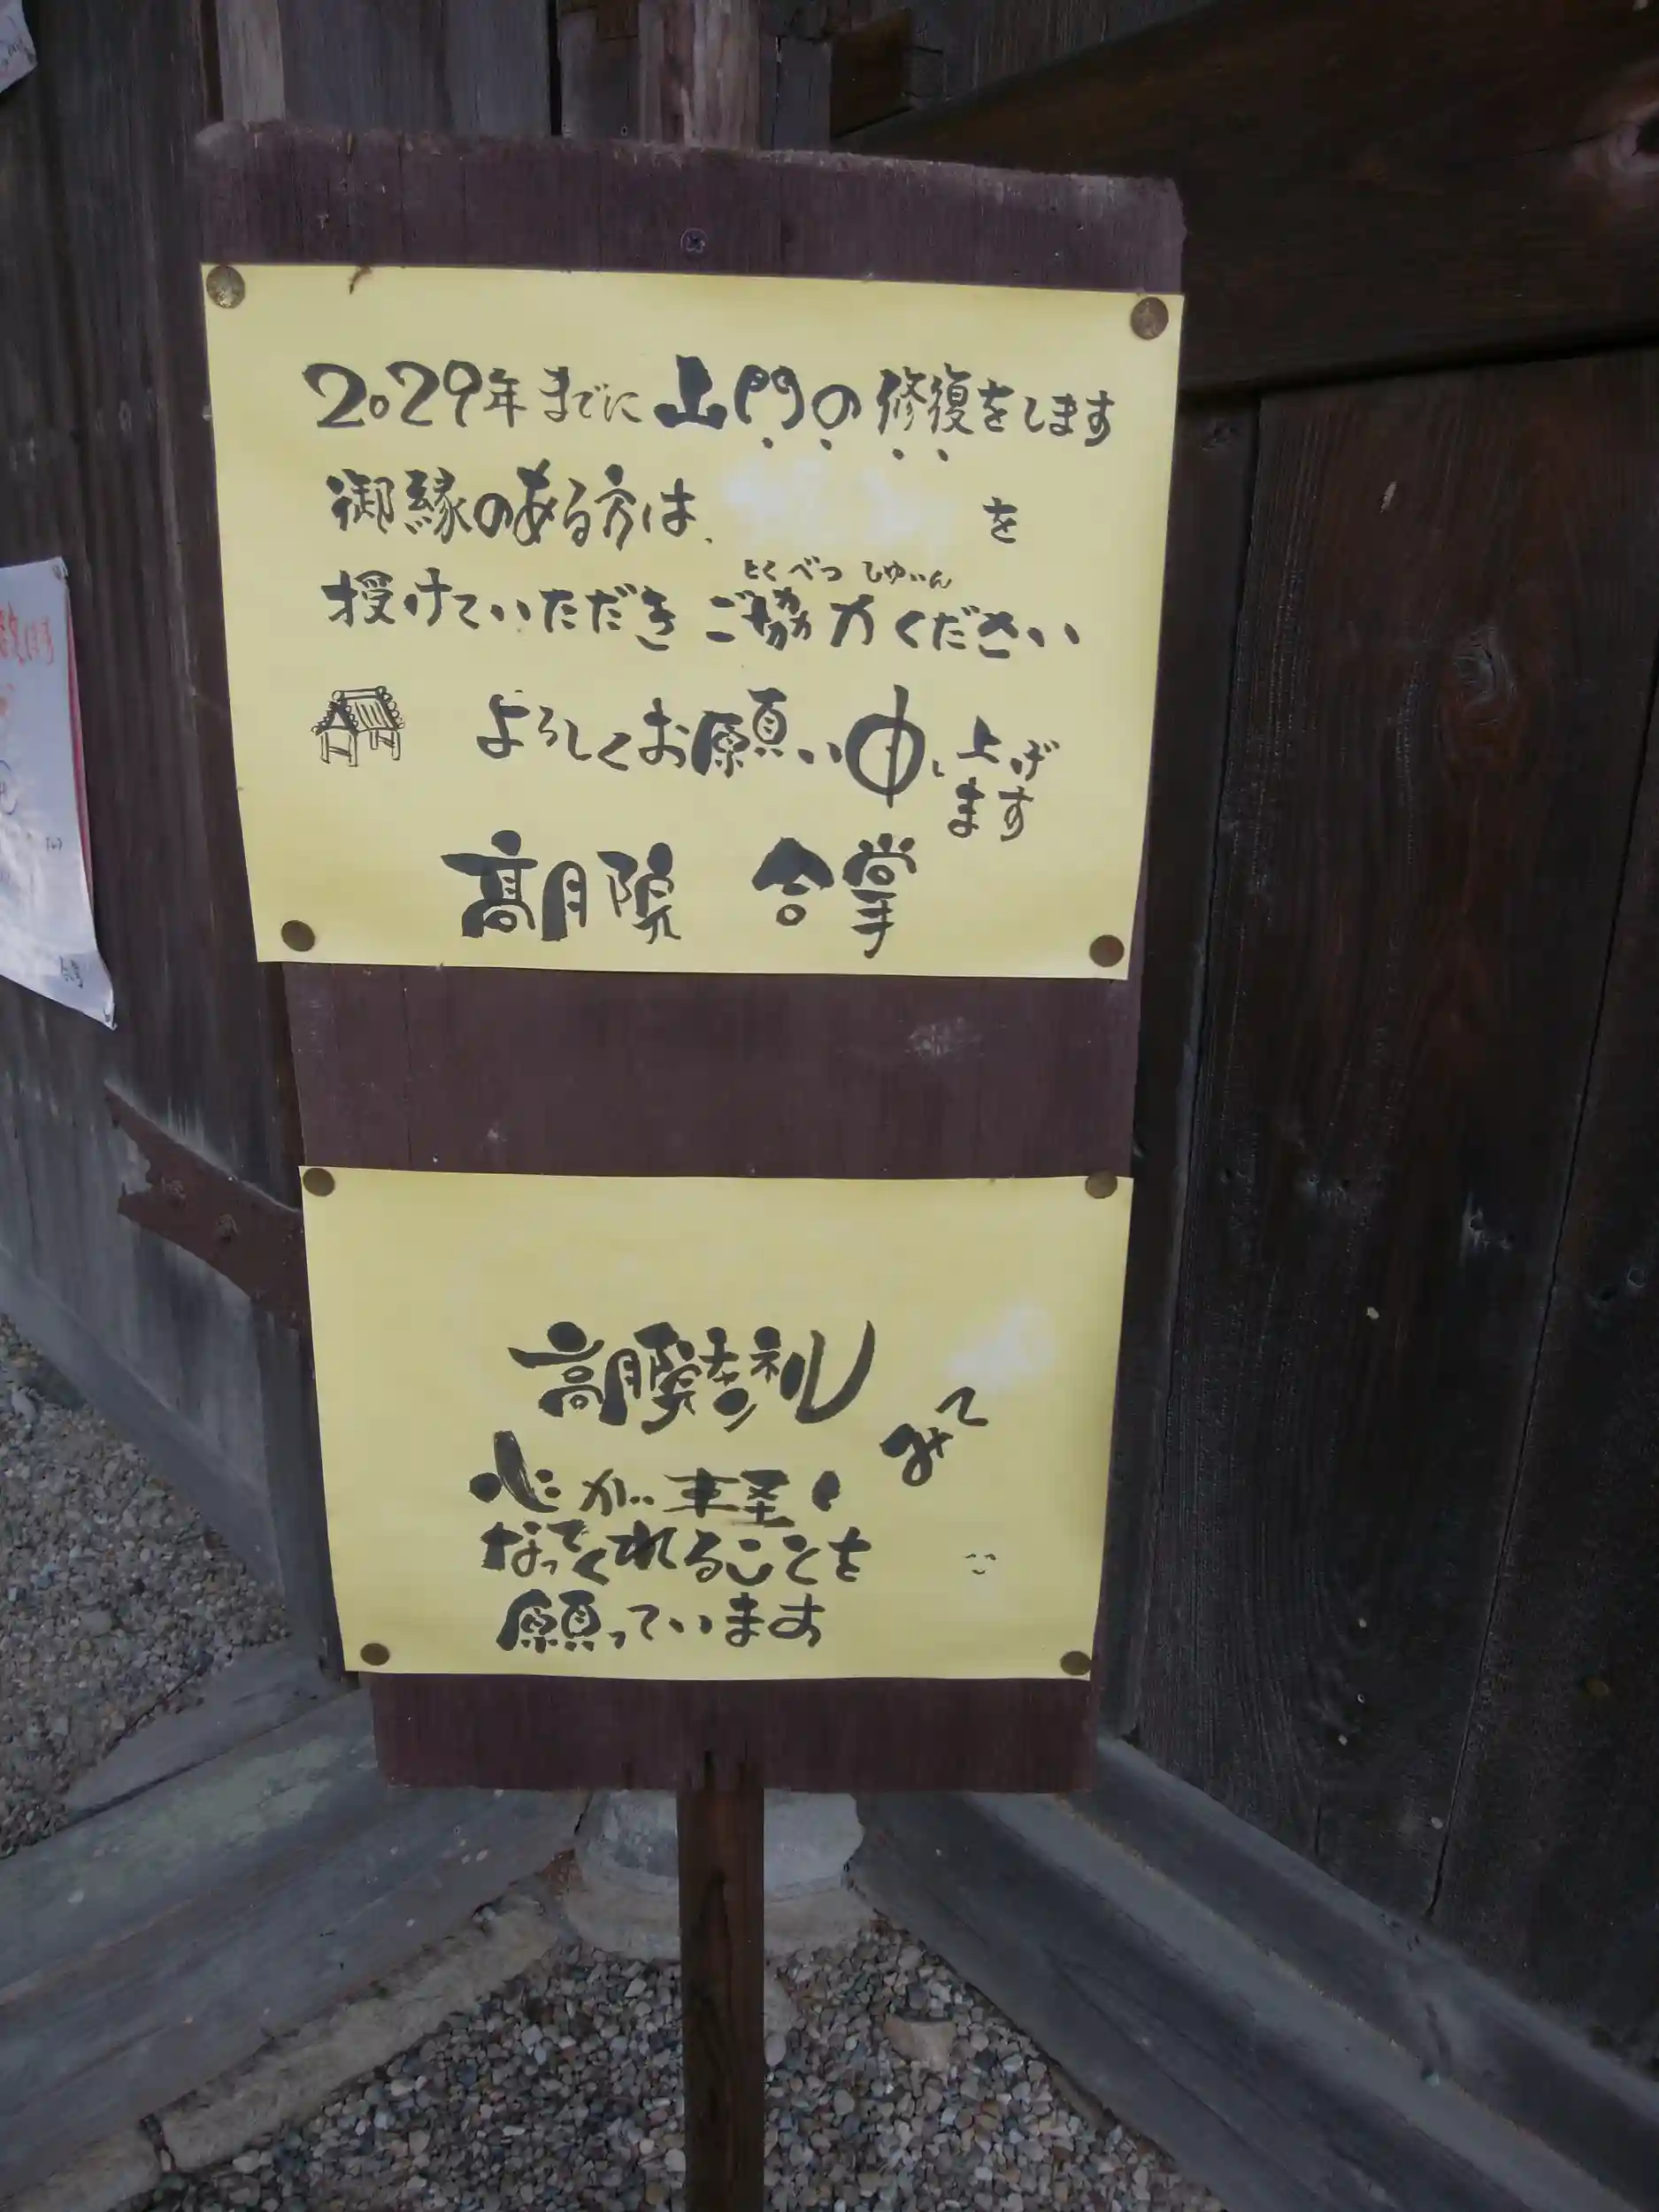 2029年までに山門の修復をします
御縁のある方は、を
とくべつしゅいん
授けていただきご協力ください
よろしくお願い申し上げ
ます
高月院 合掌
高月院寺札
みて
心が軽く
なってくれることを
願っています